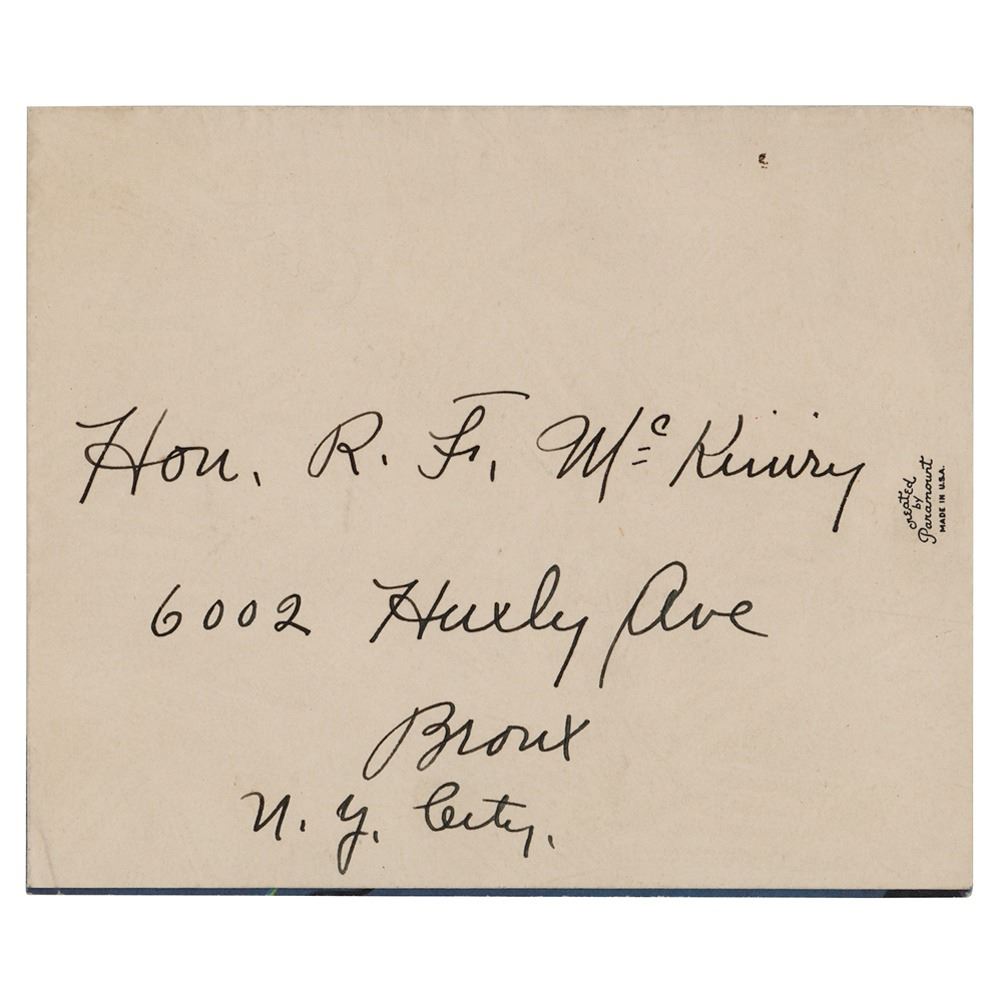 Hon. R. Fr. McKiniry
6002 Huxly Ave
Bronx
N. Y. City.
created
by
Paramount
MADE IN U.S.A.